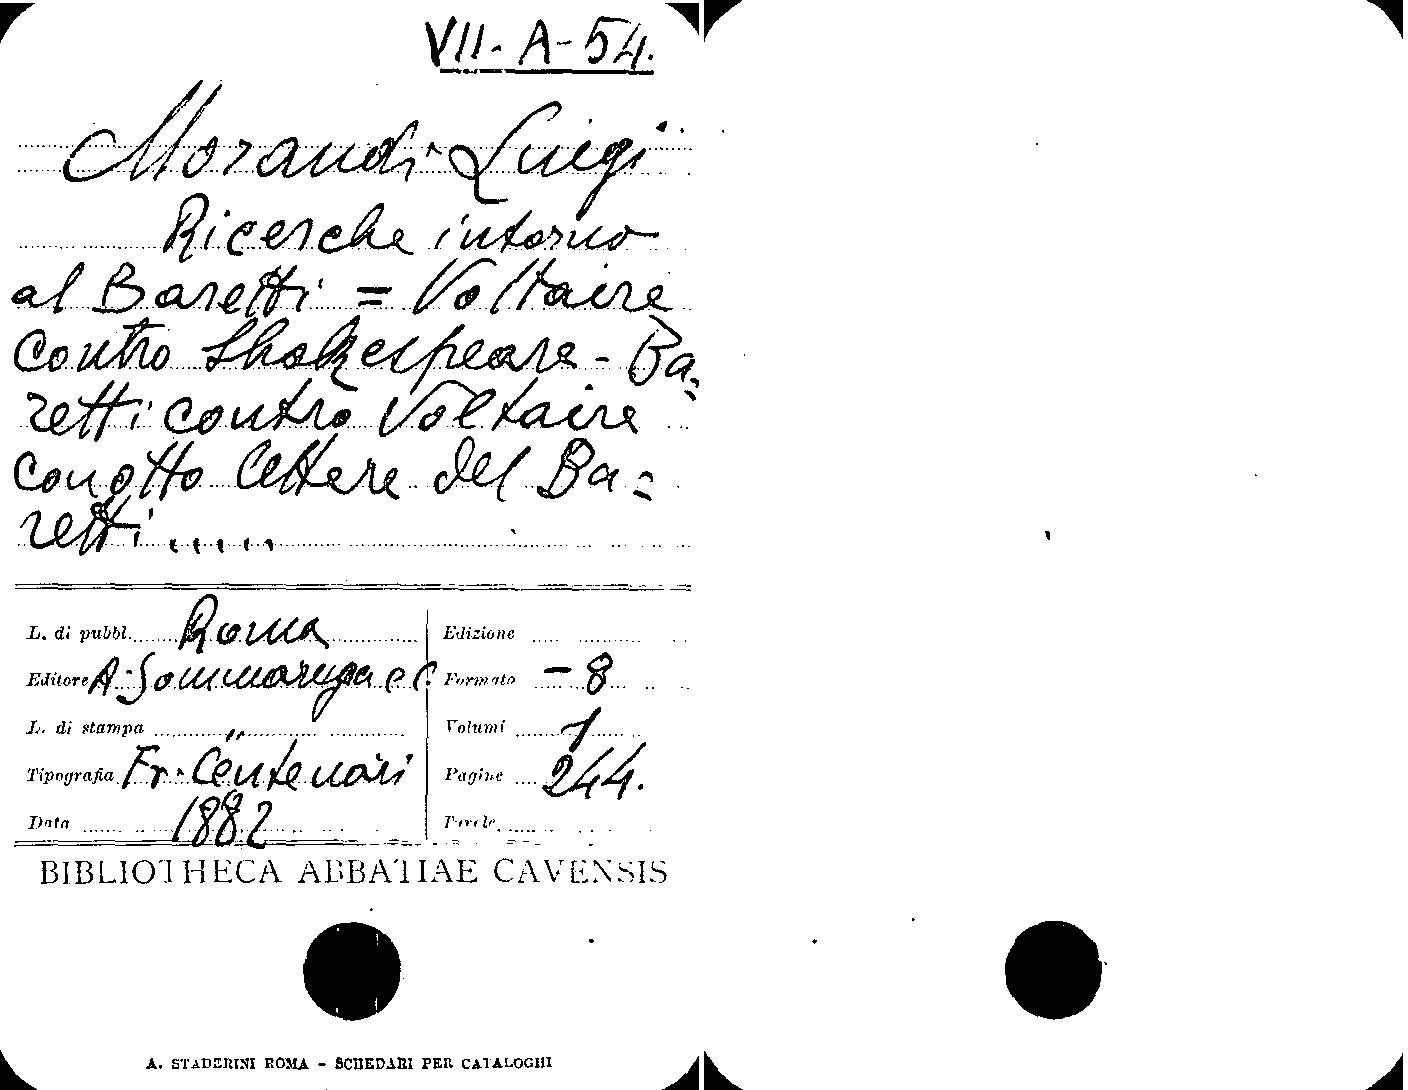 VII-A-54.
Morandi Luigi
Ricerche intorno
al Baretti = Voltaire
contro Shakespeare - Ba=
retti contro Voltaire
con otto lettere del Ba=
retti.....
L. di pubbl. Roma
Editore A. Sommaruga e C.
L. di stampa "
Tipografia Fr. Centenari
Data 1882
Edizione
Formato - 8
Volumi 1
Pagine 244.
Tavole
BIBLIOTHECA ABBATIAE CAVENSIS
A. STADERINI ROMA - SCHEDARI PER CATALOGHI